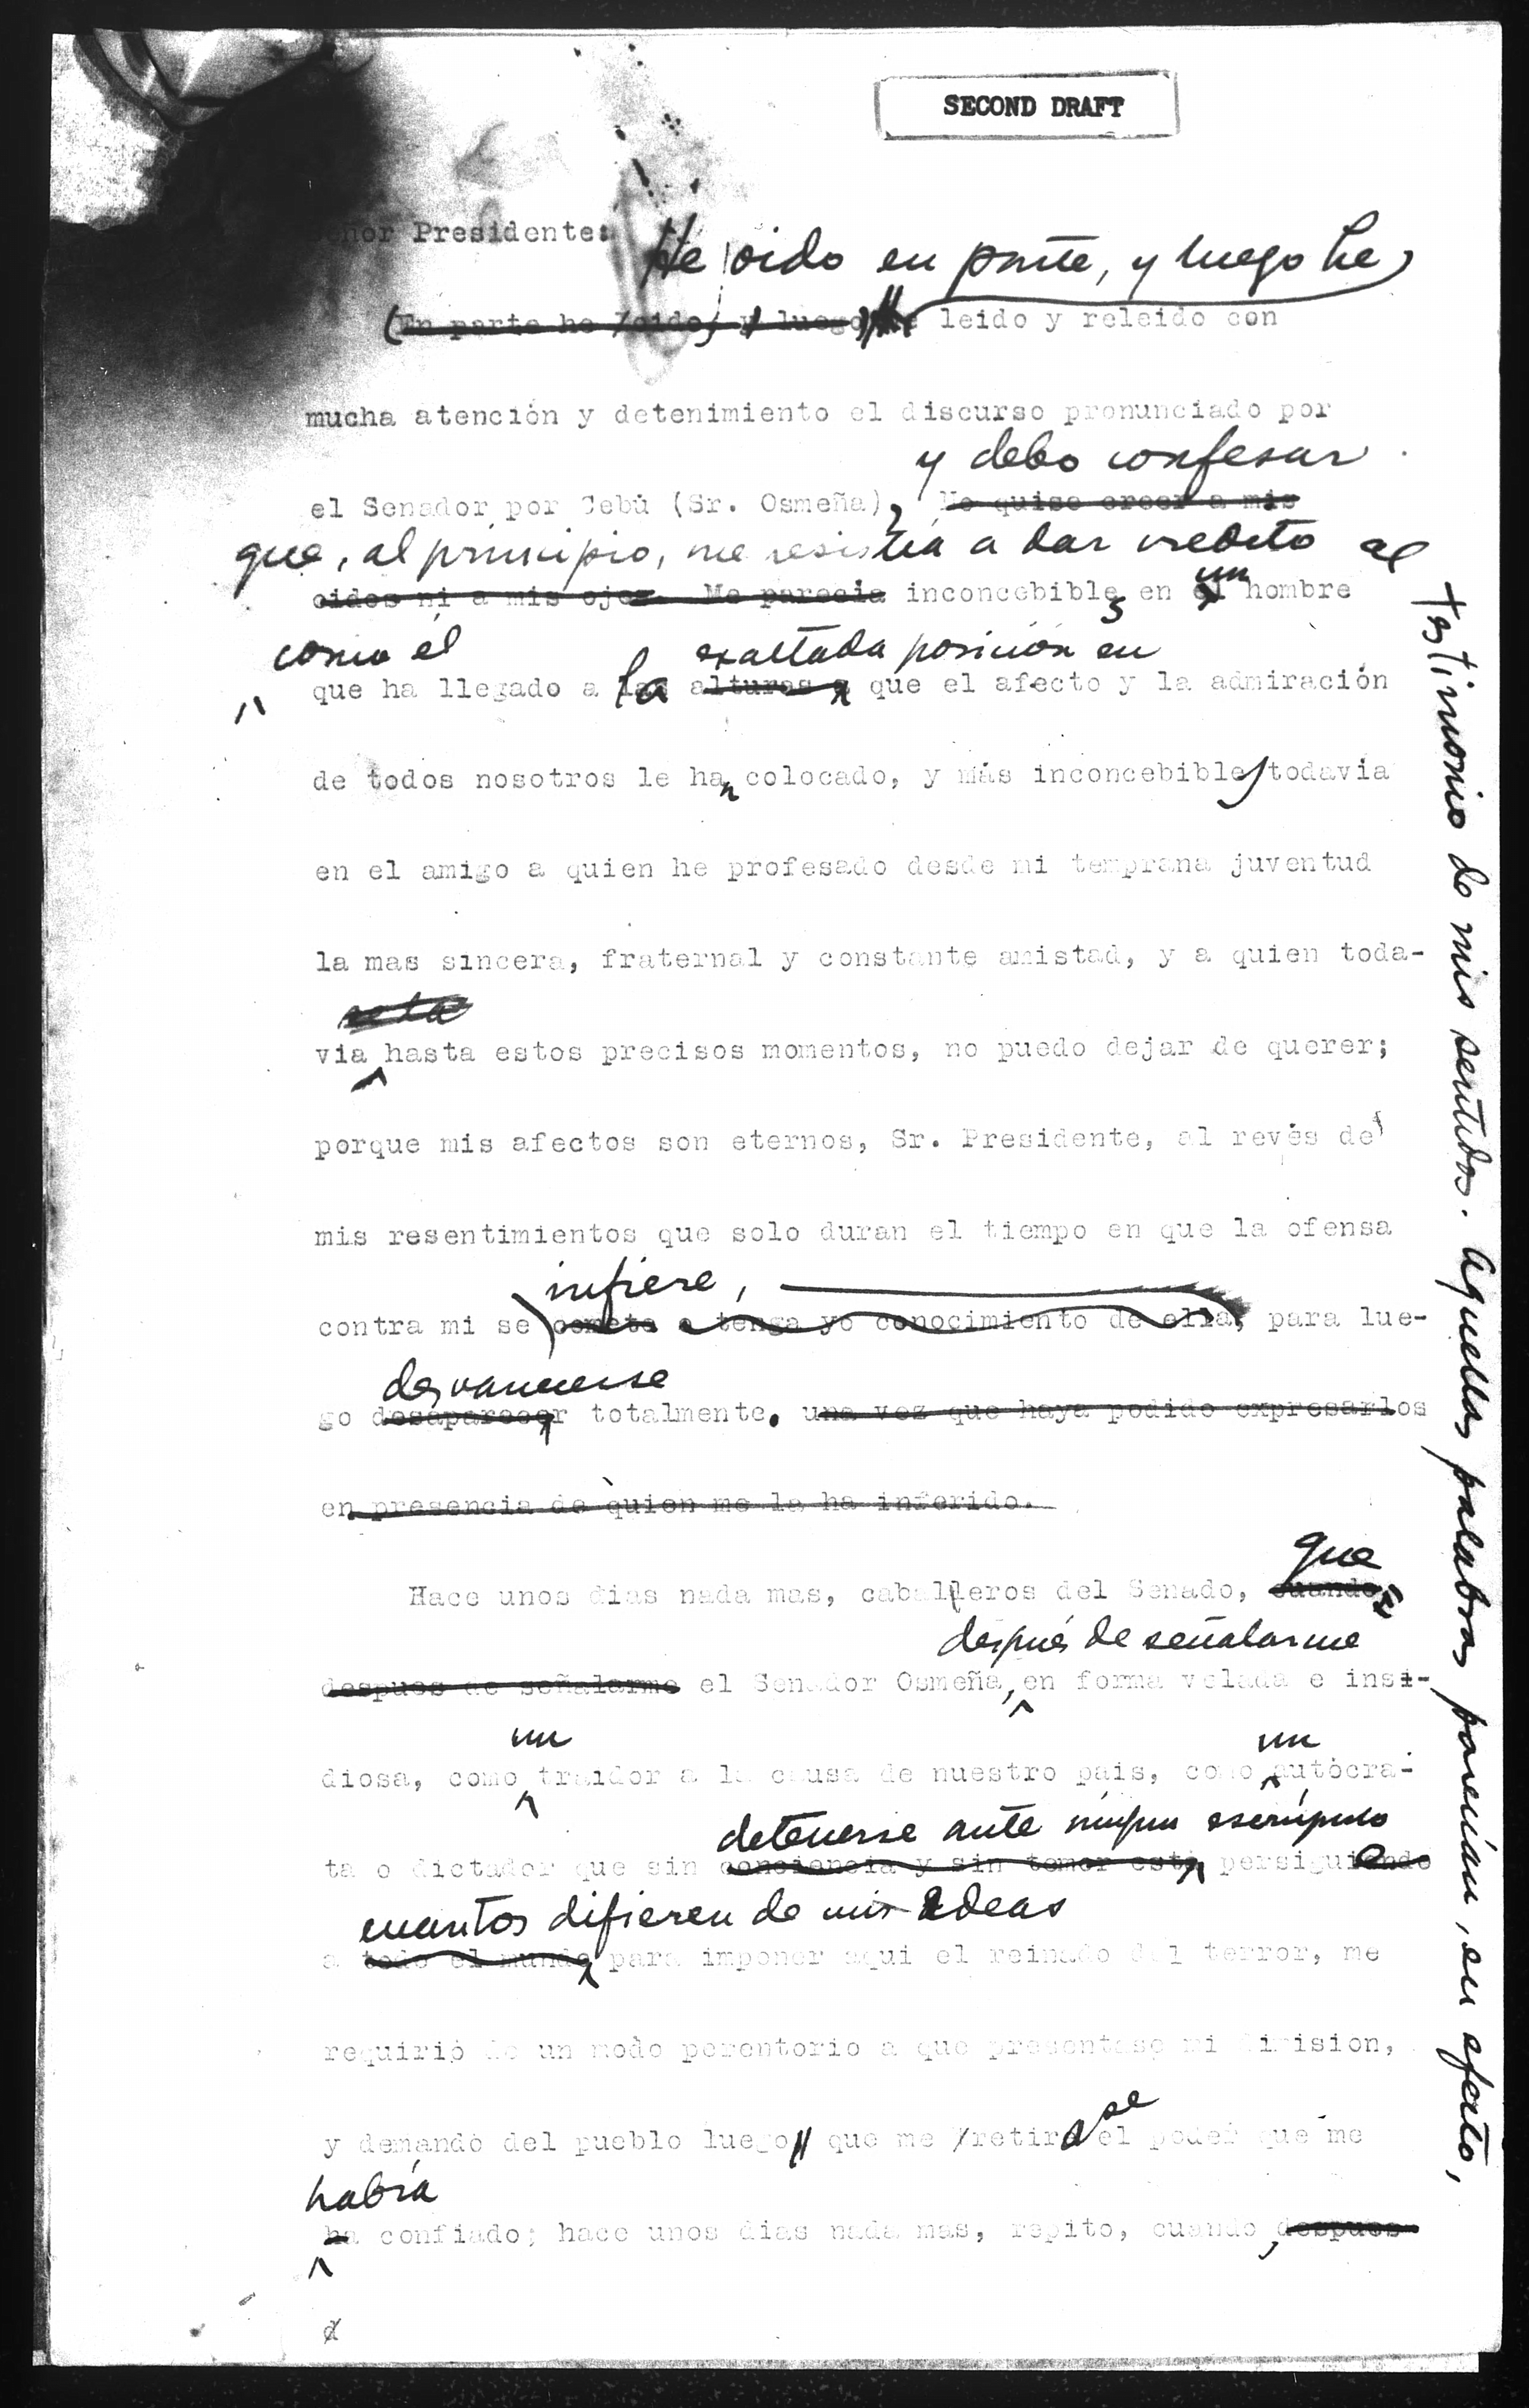 SECOND DRAFT
Señor Presidente:
He oido en parte, y luego he
(En parte he oido, y luego he leido y releido con
mucha atención y detenimiento el discurso pronunciado por
y debo confesar
el Senador por Cebú (Sr. Osmeña), No quise creer a mis
que, al principio, me resistía a dar credito al
testimonio de mis sentidos. Aquellas palabras parecían, en efecto,
oidos ni a mis ojos. Me parecia inconcebibles en un hombre
como él exaltada posición en
que ha llegado a la alturas a que el afecto y la admiración
de todos nosotros le han colocado, y más inconcebibles todavía
en el amigo a quien he profesado desde mi temprana juventud
la mas sincera, fraternal y constante amistad, y a quien toda-
via hasta estos precisos momentos, no puedo dejar de querer;
porque mis afectos son eternos, Sr. Presidente, al revés de
mis resentimientos que solo duran el tiempo en que la ofensa
infiere,
contra mi se comete o tenga yo conocimiento de ella, para lue-
desvanecerse
go desaparecer totalmente. una vez que haya podido expresarlos
en presencia de quien me la ha inferido.
que
Hace unos dias nada mas, caballeros del Senado, cuando
después de señalarme
despues de señalarme el Senador Osmeña, en forma velada e insi-
un un
diosa, como traidor a la causa de nuestro pais, como autócra-
detenerse ante ningun escrúpulo
ta o dictador que sin conciencia y sin temor está persiguiendo
cuantos difieren de mis ideas
a todo el mundo para imponer aqui el reinado del terror, me
requirió de un modo perentorio a que presentase mi dimision,
se
y demandó del pueblo luego que me retira el poder que me
había
ha confiado; hace unos dias nada mas, repito, cuando, despues